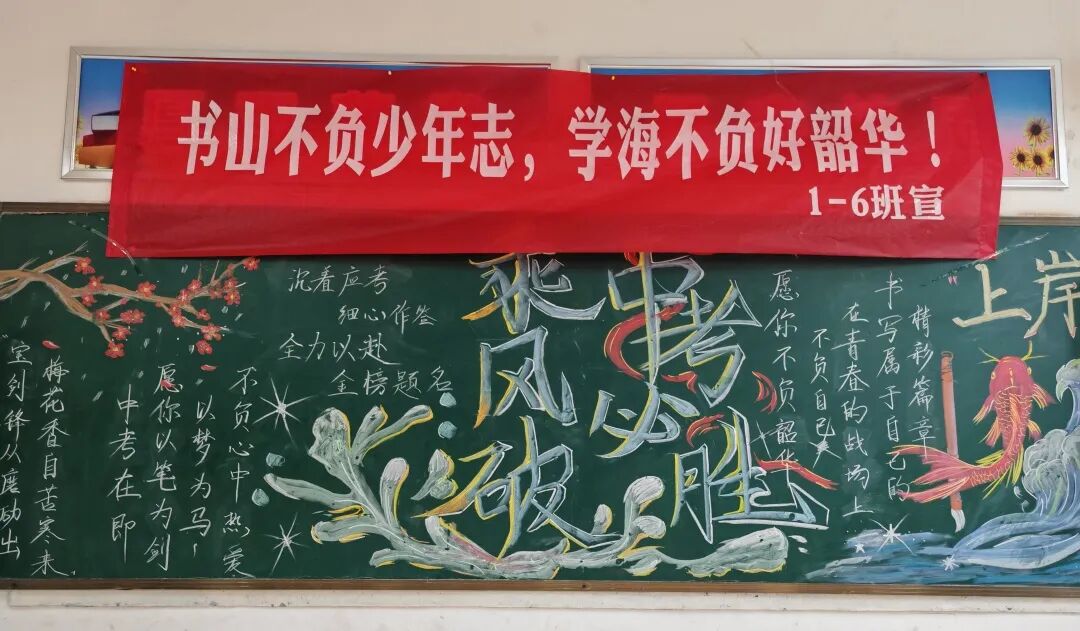 书山不负少年志，学海不负好韶华！
1-6班宣
宝剑锋从磨砺出
梅花香自苦寒来
中考在即
愿你以笔为剑
以梦为马
不负心中热爱
沉着应考
细心作答
全力以赴
金榜题名
乘风破
中考必胜
愿你不负韶华
不负自己
在青春的战场上
书写属于自己的
精彩篇章
上岸